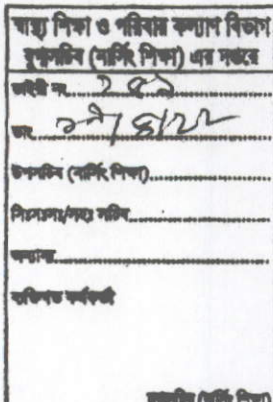 স্বাস্থ্য শিক্ষা ও পরিবার কল্যাণ বিভাগ
যুগ্মসচিব (নার্সিং শিক্ষা) এর দপ্তরে
ডাইরী নং
তাং
উপসচিব (নার্সিং শিক্ষা)
সিঃসহঃ/সহঃ সচিব
অন্যান্য
ব্যক্তিগত কর্মকর্তা
যুগ্মসচিব (নার্সিং শিক্ষা)